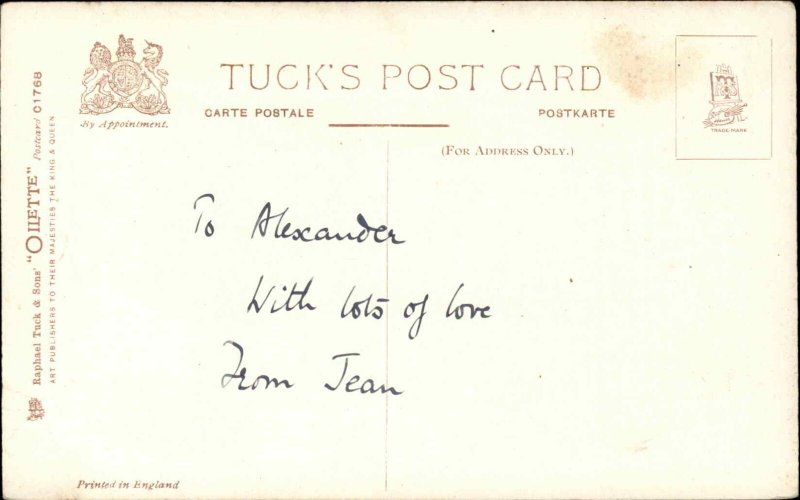 TUCK'S POST CARD
CARTE POSTALE
POSTKARTE
By Appointment.
(FOR ADDRESS ONLY.)
TRADE MARK
Raphael Tuck & Sons' "OILETTE" Postcard C1768
ART PUBLISHERS TO THEIR MAJESTIES THE KING & QUEEN
To Alexander
With lots of love
From Jean
Printed in England